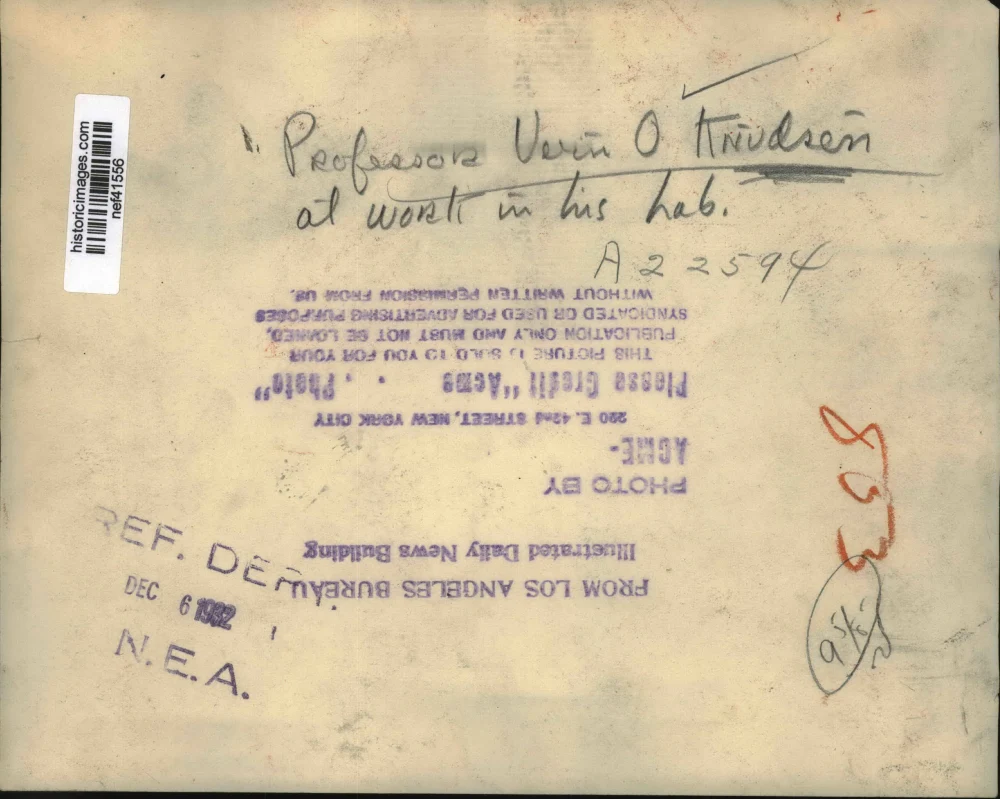 historicimages.com
nef41556
Professor Vern O Knudsen
at work in his Lab.
A22594
FROM LOS ANGELES BUREAU
Illustrated Daily News Building
PHOTO BY
ACME-
220 E. 42nd STREET, NEW YORK CITY
Please Credit "Acme Photo"
THIS PICTURE IS SOLD TO YOU FOR YOUR
PUBLICATION ONLY AND MUST NOT BE LOANED,
SYNDICATED OR USED FOR ADVERTISING PURPOSES
WITHOUT WRITTEN PERMISSION FROM US.
REF. DEPT.
DEC 6 1932
N.E.A.